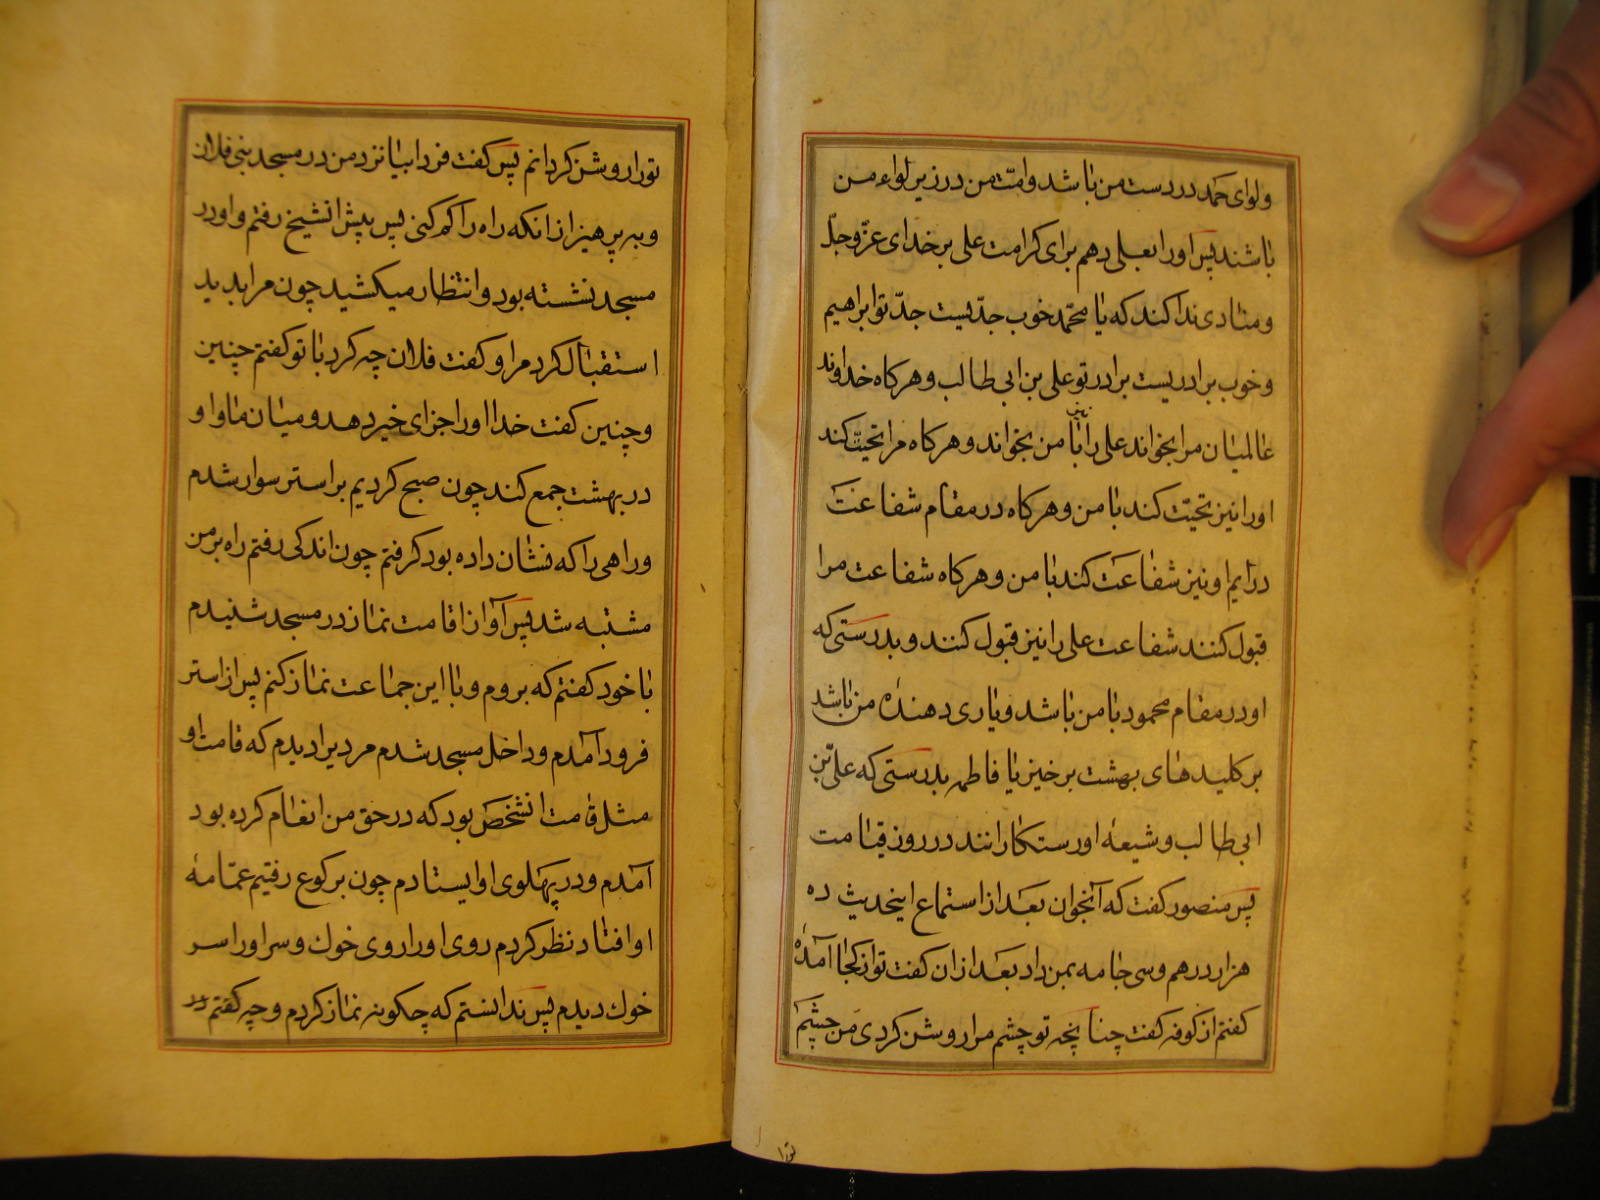 ولوای حمد در دست من باشد و امّت من در زیر لواء من
باشند پس او را بعلی دهم برای کرامت علی بر خدای عزّ و جلّ
و منادی ندا کند که یا محمّد خوب جدّیست جدّ تو ابراهیم
و خوب برادریست برادر تو علی بن ابی طالب و هرکاه خداوند
عالمیان مرا بخواند علی را با من بخواند و هرکاه مرا تحیّت کند
او را نیز تحیّت کند با من و هرکاه در مقام شفاعت
درآیم او نیز شفاعت کند با من و هرکاه شفاعت مرا
قبول کنند شفاعت علی را نیز قبول کنند و بدرستی که
او در مقام محمود با من باشد و یاری دهندهٔ من باشد
بر کلیدهای بهشت برخیز یا فاطمه بدرستی که علی بن
ابی طالب و شیعهٔ او رستکارانند در روز قیامت
پس منصور کفت که آنجوان بعد از استماع اینحدیث ده
هزار درهم و سی جامه بمن داد بعد ازان کفت تو از کجا آمدهٔ
کفتم از کوفه کفت چنانچه تو چشم مرا روشن کردی من چشم
تو را
تو را روشن کردانم پس کفت فردا بیا نزد من در مسجد بنی فلان
و بپرهیز از انکه راه را کم کنی پس پیش انشیخ رفتم و او در
مسجد نشسته بود و انتظار میکشید چون مرا بدید
استقبال کرد مرا و کفت فلان چه کرد با تو کفتم چنین
و چنین کفت خدا او را جزای خیر دهد و میان ما و او
در بهشت جمع کند چون صبح کردیم بر استر سوار شدم
و راهی را که نشان داده بود کرفتم چون اندکی رفتم راه بر من
مشتبه شد پس آواز اقامت نماز در مسجد شنیدم
با خود کفتم که بروم و با این جماعت نماز کنم پس از استر
فرود آمدم و داخل مسجد شدم مردیرا دیدم که قامت او
مثل قامت انشخص بود که در حق من انعام کرده بود
آمدم و در پهلوی او ایستادم چون برکوع رفتیم عمّامهٔ
او افتاد نظر کردم روی او را روی خوك و سر او را سر
خوك دیدم پس ندانستم که چکونه نماز کردم و چه کفتم در